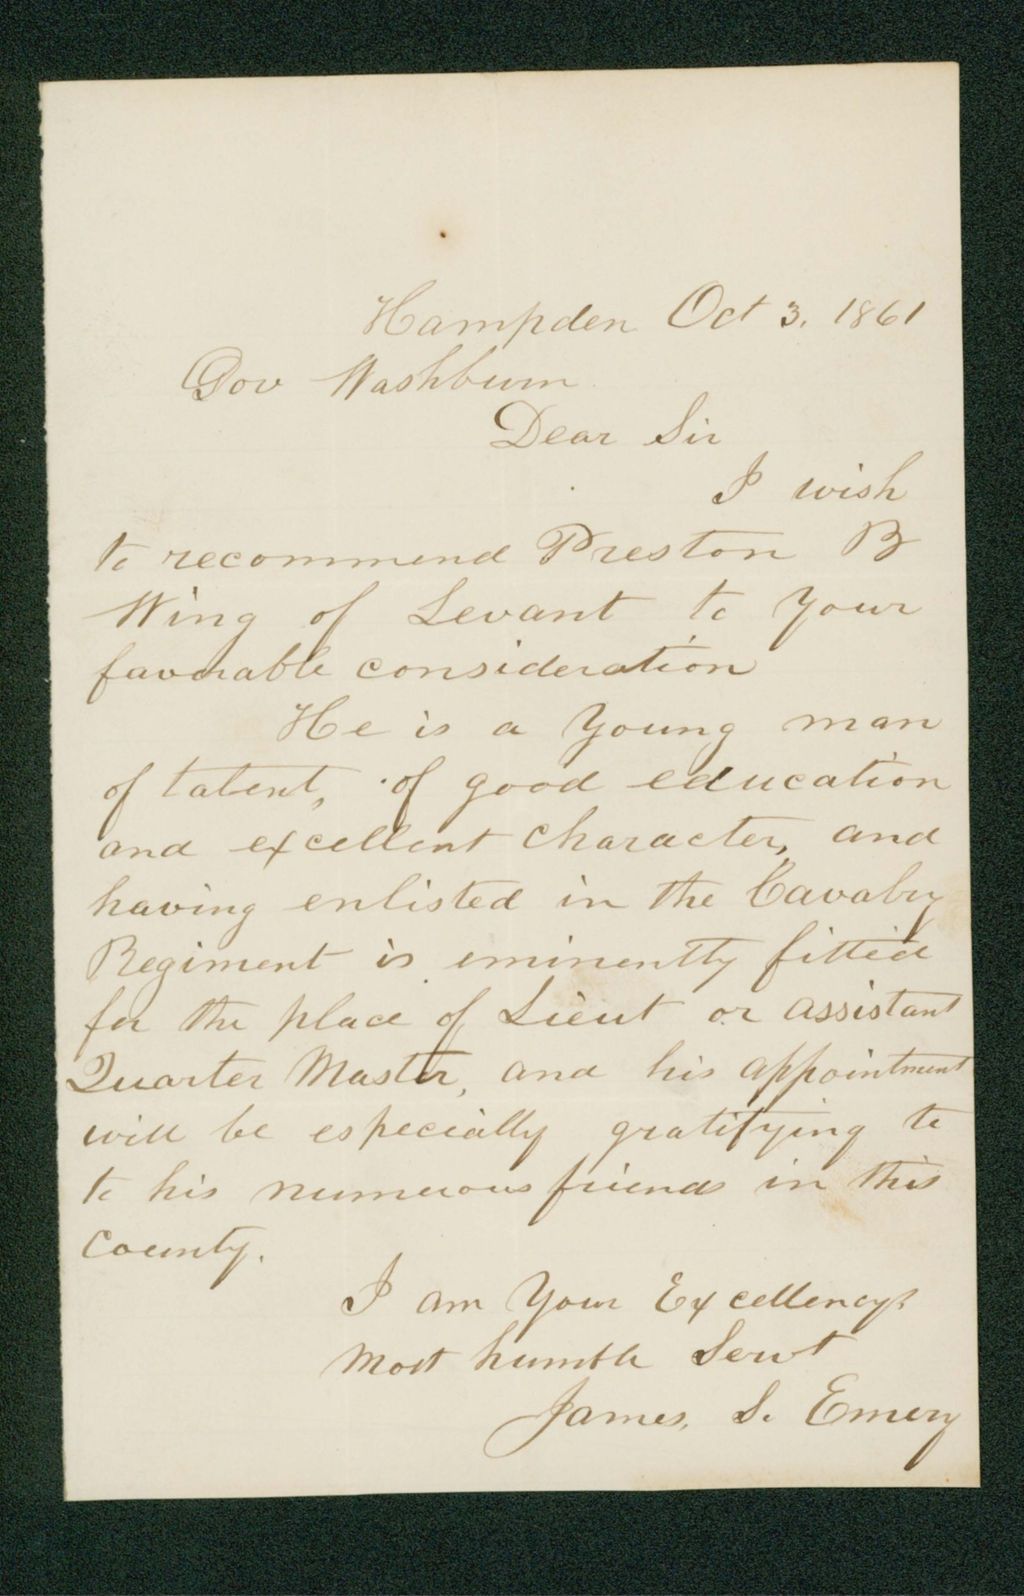 Hampden Oct 3. 1861
Gov Washburn
Dear Sir
I wish
to recommend Preston B
Wing of Levant to Your
favorable consideration
He is a Young man
of talent, of good education
and excellent character, and
having enlisted in the Cavalry
Regiment is eminently fitted
for the place of Lieut or assistant
Quarter Master, and his appointment
will be especially gratifying to
to his numerous friends in this
County.
I am Your Excellencys
Most humble Servt
James. S. Emery